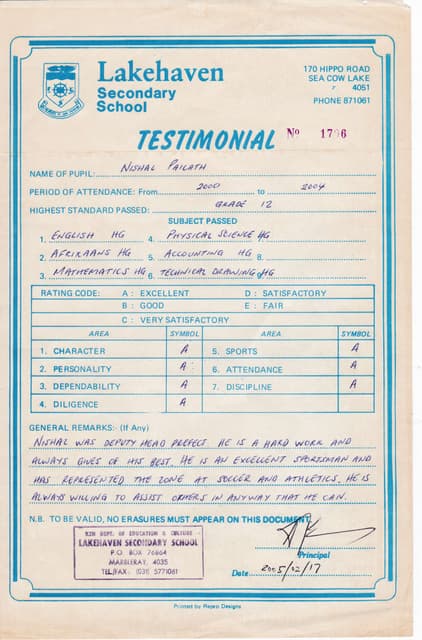 Lakehaven
Secondary
School
170 HIPPO ROAD
SEA COW LAKE
4051
PHONE 871061
TESTIMONIAL No 1796
NAME OF PUPIL: NISHAL PAILATH
PERIOD OF ATTENDANCE: From 2000 to 2004
HIGHEST STANDARD PASSED: GRADE 12
SUBJECT PASSED
1. ENGLISH HG 4. PHYSICAL SCIENCE HG 7.
2. AFRIKAANS HG 5. ACCOUNTING HG 8.
3. MATHEMATICS HG 6. TECHNICAL DRAWING HG
RATING CODE: A : EXCELLENT D : SATISFACTORY
B : GOOD E : FAIR
C : VERY SATISFACTORY
AREA SYMBOL AREA SYMBOL
1. CHARACTER A 5. SPORTS A
2. PERSONALITY A 6. ATTENDANCE A
3. DEPENDABILITY A 7. DISCIPLINE A
4. DILIGENCE A
GENERAL REMARKS:- (If Any)
NISHAL WAS DEPUTY HEAD PREFECT. HE IS A HARD WORK AND
ALWAYS GIVES OF HIS BEST. HE IS AN EXCELLENT SPORTSMAN AND
HAS REPRESENTED THE ZONE AT SOCCER AND ATHLETICS. HE IS
ALWAYS WILLING TO ASSIST OTHERS IN ANYWAY THAT HE CAN.
N.B. TO BE VALID, NO ERASURES MUST APPEAR ON THIS DOCUMENT
KZN DEPT. OF EDUCATION & CULTURE
LAKEHAVEN SECONDARY SCHOOL
P.O. BOX 76864
MARBLERAY, 4035
TEL/FAX: (031) 5771061
Principal
Date 2005/02/17
Printed by Rajeso Designs